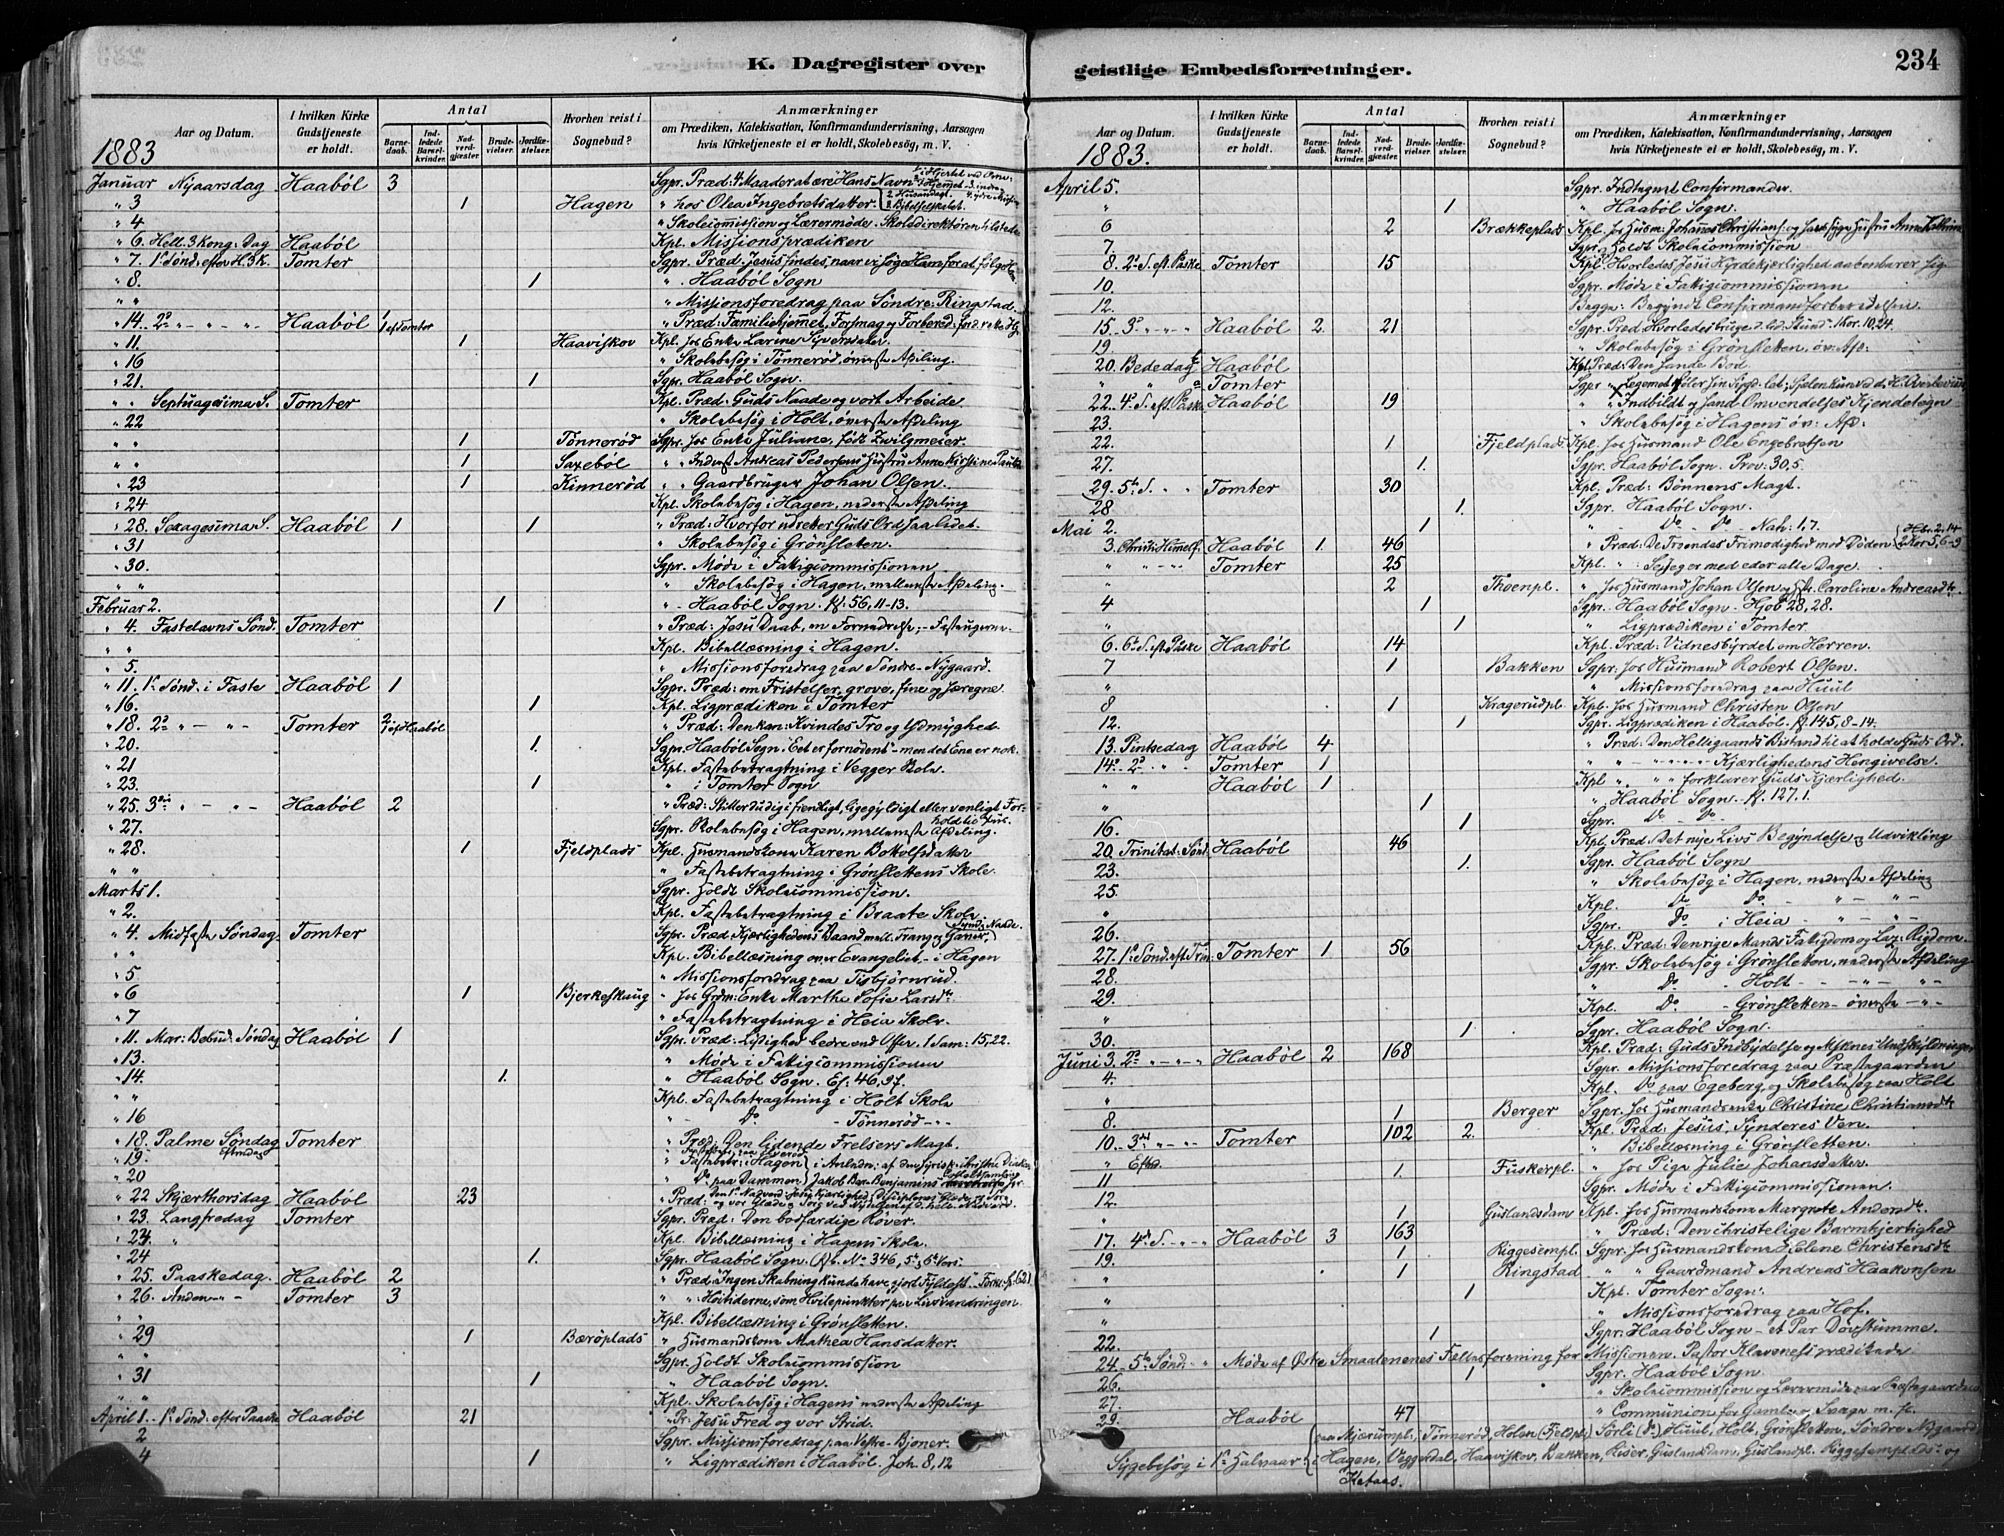 K. Dagregister over geistlige Embedsforretninger. 234
Aar og Datum. I hvilken Kirke Gudstjeneste er holdt. Antal Barnedaab. Indledede Barselkvinder. Nadverdgjæster. Brudevielser. Jordfæstelser. Hvorhen reist i Sognebud? Anmærkninger om Prædiken, Katekisation, Konfirmandundervisning, Aarsagen hvis Kirketjeneste ei er holdt, Skolebesög, m. V.
1883
Januar Nyaarsdag Haaböl 3 Sgpr. Præd: 4 Maader at ære Hans Navn
" 3 1 Hagen " hos Olea Ingebretsdatter
" 4 " Skolecommission og Lærermøde. Skoledirektören tilstede
" 6. Hell. 3 Kong: Dag Haaböl Kpl. Missionsprædiken
" 7. 1ste Sönd. efter H.3K. Tomter Sgpr. Præd: Jesus findes, naar vi söge Ham for at fölge
" 8. 1 " Haaböl Sogn
" " " Missionsforedrag paa Söndre: Ringstad
" 14. 2d " " " Haaböl 1 Tomter " Præd: Familiehjemmet
" 11. 1 Haaviskov Kpl. hos Enke Larine Syversdatter
" 16 " Skolebesög i Tönneröd, överste Afdeling.
" 21. 1 Sgpr. Haaböl Sogn.
" " Septuagesima S. Tomter Kpl. Præd: Guds Naade og vort Arbeide
" 22 " Skolebesög i Holt, överste Afdeling
" " 1 Tönneröd Sgpr. hos Enke Juliane, födt Zwilgmeier.
" " 1 Saxeböl " Inderst Andreas Pedersens Hustru Anne Kirstine
" 23 1 Kinneröd " " Gaardbruger Johan Olsen.
" 24 Kpl. Skolebesög i Hagen, nederste Afdeling
" 28. Sexagesima S. Haaböl 1 1 " Præd: Hvorfor udretter Guds Ord saa lidet.
" 31 " Skolebesög i Grönsletten.
" 30. Sgpr. Möde i Fattigcommissionen
" " " Skolebesög i Hagen, mellemste Afdeling
Februar 2. 1 " Haaböl Sogn. 56, 11-13.
" 4. Fastelavns Sönd. Tomter " Præd: Jesu Daab, en Fornedrelse
" " Kpl. Bibellæsning i Hagen.
" 5. " Missionsforedrag paa Söndre-Nygaard.
" 11. 1ste Sönd: i Faste Haaböl 1 Sgpr. Præd: om Fristelser, grove, fine og
" 16. 1 Kpl. Ligprædiken i Tomter
" 18. 2d " " " Tomter 2 1 af Haaböl " Præd: Den kan: Kvindes Tro og Ydmyghed
" 20. 1. Sgpr. Haaböl Sogn. "Eet er fornödent" - men det Ene er nok.
" 21 Kpl. Fastebetragtning i Vegger Skole.
" 23. 1 " i Tomter Sogn
" 25. 3die " " " Haaböl 2 " Præd: Stiller du dig i fiendtligt, ligegyldigt eller venligt Forhold til
" 27. Sgpr. Skolebesög i Hagen, mellemste Afdeling.
" 28. 1 Fjeldplads Kpl. Husmandskone Karen
" " " Fastebetragtning i Grönslettens Skole.
Marts 1. Sgpr. holdt Skolecommission.
" 2. Kpl. Fastebetragtning i Braate Skole.
" 4. Midfaste Söndag. Tomter Sgpr. Præd: Kjærlighedens Baand
" " Kpl. Bibellæsning over Evangeliet - i Hagen
" 5 " Missionsforedrag paa Tisbjörnrud.
" 6 1 Bjerkeskaug " hos Grdm: Enke Marthe Sofie Larsdtr.
" 7 " Fastebetragtning i Heia Skole.
" 11. Mar: Bebud. Söndag Haaböl 1 Sgpr. Præd: Lydighed bedre end Offer. 1 Sam: 15,22.
" 13. " Möde i Fattigcommissionen
" 14. 1. " Haaböl Sogn. Es. 46,
" " Kpl. Fastebetragtning i Holt Skole
" 16 " Do. " Tönneröd -"-
" 18. Palme Söndag Tomter " Præd: Den lidende Frelsers Magt.
" 19. " Fastebetr: i Hagen
" 20 " Do paa Dammen
" 22 Skjærthorsdag Haaböl 23 " Præd:
" 23. Langfredag Tomter Sgpr. Præd: Den bodfærdige Röver.
" 23. " Kpl. Bibellæsning i Hagens Skole.
" 24 1. Sgpr. Haaböl Sogn. No 346, 5 Vers.
" 25. Paaskedag. Haaböl 2 " Præd: "Ingen Skabning kunde have gjort Fyldest"
" 26. Anden " " Tomter 3 " " Höitiderne, som Hvilepunkter paa Livsvandringen.
" " Kpl. Bibellæsning i Grönsletten.
" 29 1 Bæröplads " Husmandskone Mathea Hansdatter.
" " Sgpr. holdt Skolecommission
" 31 1 " Haaböl Sogn.
" " Kpl. Skolebesög i Hagens nederste Afdeling
April 1. 1ste Sönd: efter Paaske Haaböl 21 " Pr. Jesu Fred og vor Strid.
" 2 Sgpr. Missionsforedrag paa Vestre-Bjoner.
" 4 1 " Ligprædiken i Haaböl. Joh. 8, 12
Aar og Datum. I hvilken Kirke Gudstjeneste er holdt. Antal Barnedaab. Indledede Barselkvinder. Nadverdgjæster. Brudevielser. Jordfæstelser. Hvorhen reist i Sognebud? Anmærkninger om Prædiken, Katekisation, Konfirmandundervisning, Aarsagen hvis Kirketjeneste ei er holdt, Skolebesög, m. V.
1883.
April 5. Sgpr. Indtegnet Confirmander.
" 1 " Haaböl Sogn.
6 2 Brækkeplads Kpl. hos Husm: Johannes Christians. og Hustru Anne
7. Sgpr. holdt Skolecommission
8. 2d S. eft. Paaske Tomter 15 Kpl. Hvorledes Jesu Hyrdekjærlighed aabenbarer sig
10. Sgpr. Möde i Fattigcommissionen
12. Begge: Begyndt Confirmandforberedelsen
15. 3d " " " Haaböl 2. 21 Sgpr. Præd: Hvorledes 1 Kor. 10,24.
19. " Skolebesög i Grönsletten, öv. Afd:
20. Bededag Haaböl Kpl. Præd: Den sande Bod.
" " Tomter Sgpr. "
22. 4de S. eft. Paaske Haaböl 19 " Indbildt og sand Omvendelses Kjendetegn
23. " Skolebesög i Hagens öv: Afd:
22. 1 Fjeldplads Kpl. hos Husmand Ole Engebretsen
27. 1. Sgpr. Haaböl Sogn. Prov: 30.5.
29. 5te S. " " Tomter 30 Kpl. Præd: Bönnens Magt.
28 1. Sgpr. Haaböl Sogn.
Mai 2. 1 " Do - Do - Nah: 1.7.
3. Christi Himmelf. Haaböl 1. 46 " Præd: De Troendes Frimodighed mod Döden Hb. 2,14 2 Kor 5,6-9
" " " " Tomter 25 Kpl. " : Se jeg er med eder alle Dage.
" 2 Thoenpl. " hos Husmand Johan Olsen og Caroline Andreasdtr.
4 1 Sgpr. Haaböl Sogn. Hjob 28, 28.
" 1 " Ligprædiken i Tomter.
6. 6te S. eft. Paaske Haaböl 14 Kpl. Præd: Vidnesbyrdet om Herren.
7 1 Bakken Sgpr. hos Husmand Robert Olsen.
" " Missionsforedrag paa Huul
8 1 Kragerudpl. Kpl. hos Husmand Christen Olsen
12. 1 Sgpr. Ligprædiken i Haaböl. 145, 8-14.
13. Pintsedag Haaböl 4 " Præd: Den Helligaands Bistand til at holde Guds Ord.
14. 2d " " Tomter 1 " " Kjærlighedens Hengivelse.
" " Haaböl 1 Kpl " " forklarer Guds Kjærlighed.
" 1 " Haaböl Sogn. 127.1.
16. 1 Sgpr. Do - Do
20. Trinitat: Sönd. Haaböl 46 Kpl. Præd: Det nye Livs Begyndelse og Udvikling
23. 1. Sgpr. Haaböl Sogn
25. " Skolebesög i Hagen, nederste Afdeling
" Kpl. Do " " "
26. Sgpr. Do i Heia " "
27. 1ste Sönd. eft. Trin: Tomter 1 56 Kpl. Præd: Den rige Mands Fattigdom og Laz: Rigdom.
28. Sgpr. Skolebesög i Grönsletten, nederste Afdeling
29. " Do - Holt " "
" Kpl. Do. - Grönsletten - överste " "
30. 1 Sgpr. Haaböl Sogn.
Juni 3. 2d " " " Haaböl 2 168 Kpl. Præd: Guds Indbydelse og Msknes Undskyldninger
4. Sgpr. Missionsforedrag paa Præstegaarden
" Kpl. Do paa Egeberg, og Skolebesög paa Holt
8. 1 Berger Sgpr. hos Husmandsenke Christine Christiansdtr
10. 3die " " Tomter 102 2. Kpl. Præd: Jesus, Synderes Ven
" Eftd. " Bibellæsning i Grönsletten.
11 1. Fuskerpl. " hos Pige Julie Johansdatter.
12. Sgpr. Möde i Fattigcommissionen.
" 1 Guslandsdam Kpl. hos Husmandskone Margrete Andersdtr.
17. 4de S. " " Haaböl 3 163 " Præd: Den christelige Barmhjertighed
19. 1 Riggesempl. Sgpr. hos Husmandskone Helene Christensdtr
" 1 Ringstad " " Gaardmand Andreas Haakonsen
" 1 Kpl. Tomter Sogn.
" " Missionsforedrag paa Hof.
22. 1 Sgpr. Haaböl Sogn - et Par Dövstumme.
24 - 5te Sönd. " Möde af Östre Smaalenenes Fællesforening for Missionen. Pastor Klaveness prædikede
26. 1 Sgpr. Haaböl Sogn.
27. " Skolecommission og Lærermöde paa Præstegaarden
29. Haaböl 47 " Communion for Gamle og Svage m. fl.
Sygebesög i 1ste Halvaar paa Mjærumpl, Tönneröd, Holen (Fjeldpl.) Sörli (Do) Huul, Holt, Grönsletten, Söndre Nygaard
i Hagen, Veggerdal, Haaviskov, Bakken, Riser, Guslandsdam, Guslandpl. Riggesempl. og